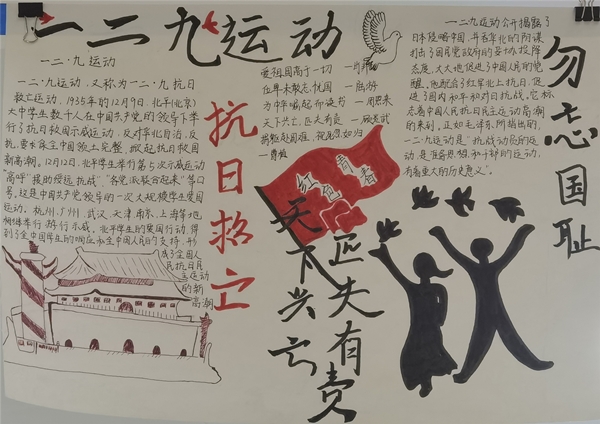 一二九运动
一二·九运动
一二·九运动，又称为一二·九抗日
救亡运动，1935年12月9日，北平(北京)
大中学生数千人在中国共产党的领导下举
行了抗日救国示威运动，反对华北自治，反
抗
要求保全中国领土完整，掀起抗日救国
新高潮。12月12日，北平学生举行第5次示威运动
"高呼"援助绥远抗战"，"各党派联合起来"等口
号，这是中国共产党领导的一次大规模学生爱国
运动。杭州、广州、武汉、天津、南京、上海等地
相继举行游行示威，北平学生的爱国行动，得
到了全中国学生的响应和全中国人民的支持，形
成了全国人
民抗日民
主运动
的新
高潮
抗日救亡
爱祖国高于一切
位卑未敢忘忧国
一陆游
为中华崛起而读书
一周恩来
天下兴亡，匹夫有责
捐躯赴国难，视死忽如归
一曹植
红色青春
天下兴亡
匹夫有责
一二九运动公开揭露了
日本侵略中国，并吞华北的阴谋
打击了国民党政府的妥协投降
态度，大大地促进了中国人民的觉
醒。它配合了红军北上抗日，促
进了国内和平和对日抗战。它标
志着中国人民抗日民主运动高潮
的来到。正如毛泽东所指出的，
一二九运动是"抗战动员的运
动，是准备思想和干部的运动，
有着重大的历史意义"。
勿忘国耻